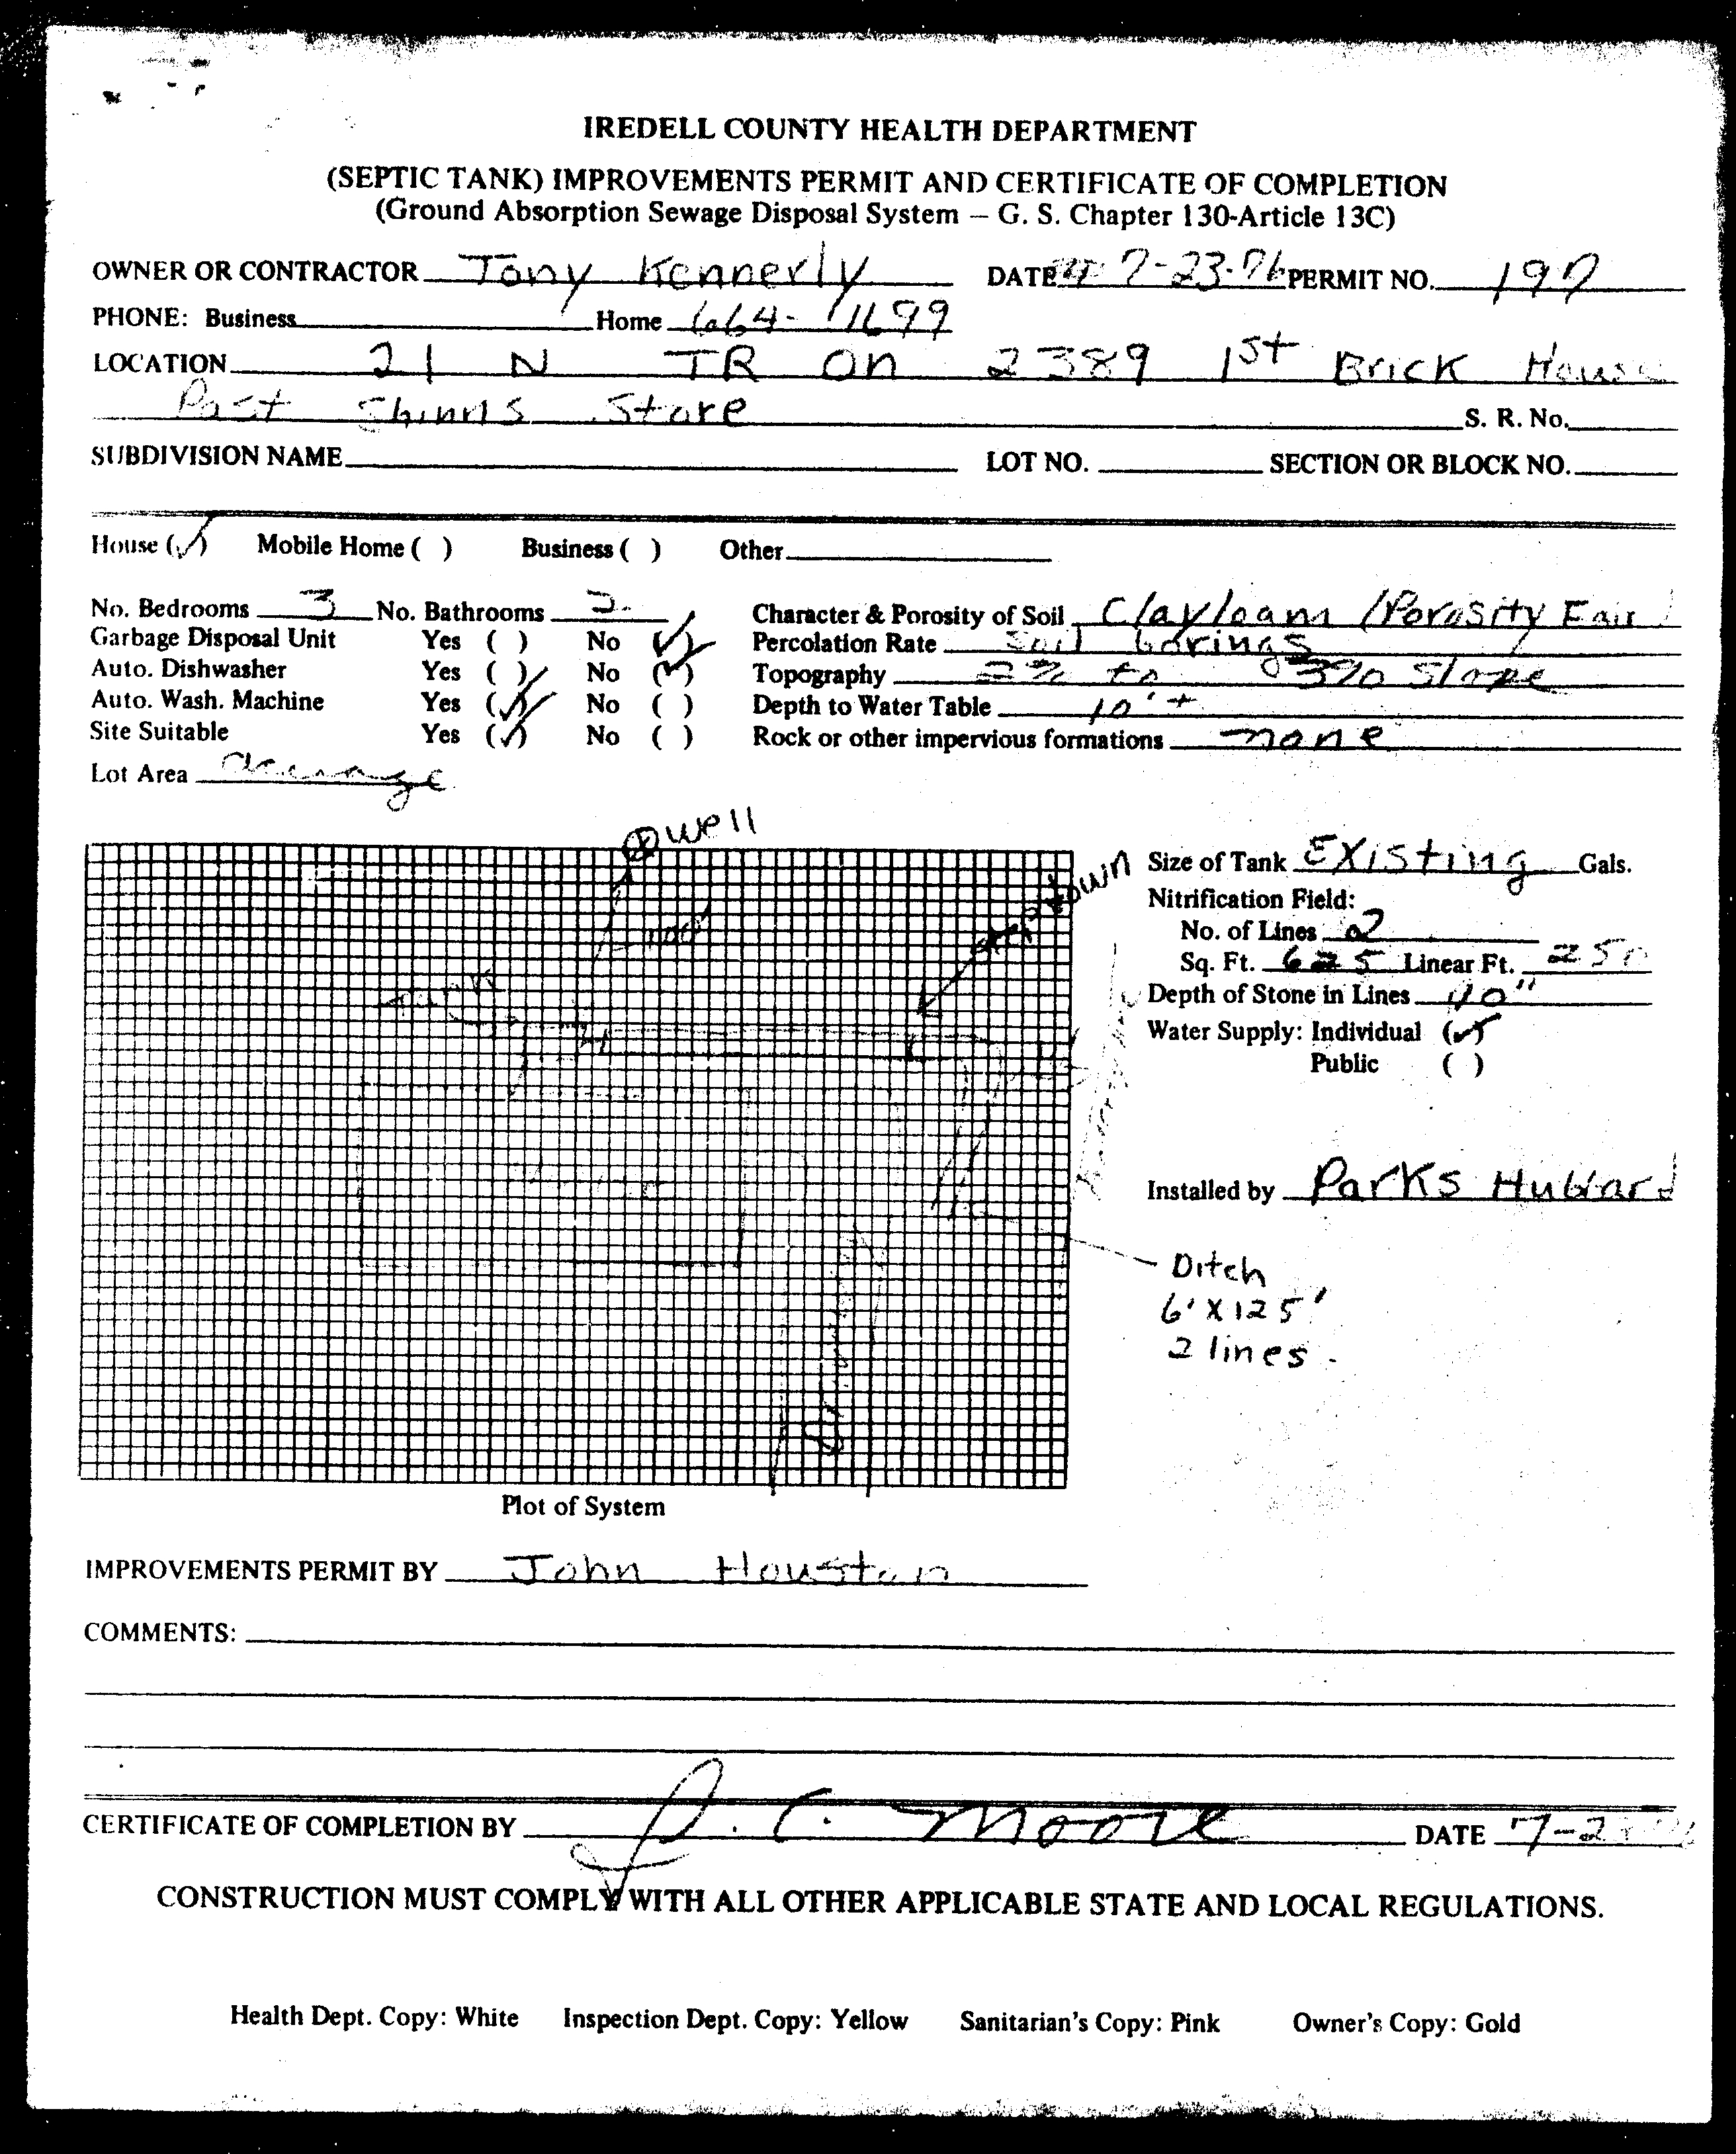 IREDELL COUNTY HEALTH DEPARTMENT
(SEPTIC TANK) IMPROVEMENTS PERMIT AND CERTIFICATE OF COMPLETION
(Ground Absorption Sewage Disposal System – G. S. Chapter 130-Article 13C)
OWNER OR CONTRACTOR Tony Kennerly DATE 7-23-76 PERMIT NO. 197
PHONE: Business Home 664-1699
LOCATION 21 N TR On 2389 1st Brick House
Past Shinns Store S. R. No.
SUBDIVISION NAME LOT NO. SECTION OR BLOCK NO.
House (✓) Mobile Home ( ) Business ( ) Other
No. Bedrooms 3 No. Bathrooms 2 Character & Porosity of Soil Clayloam (Porosity Fair)
Garbage Disposal Unit Yes ( ) No (✓) Percolation Rate Soil borings
Auto. Dishwasher Yes ( ) No (✓) Topography 2% to 3% Slope
Auto. Wash. Machine Yes (✓) No ( ) Depth to Water Table 10'+
Site Suitable Yes (✓) No ( ) Rock or other impervious formations none
Lot Area
well
step down
100'
Tank
Size of Tank Existing Gals.
Nitrification Field:
No. of Lines 2
Sq. Ft. 625 Linear Ft. 250
Depth of Stone in Lines 10"
Water Supply: Individual (✓)
Public ( )
Installed by Parks Hubbard
Ditch
6' X 125'
2 lines
Plot of System
IMPROVEMENTS PERMIT BY John Houston
COMMENTS:
CERTIFICATE OF COMPLETION BY J. C. Moore DATE 7-2
CONSTRUCTION MUST COMPLY WITH ALL OTHER APPLICABLE STATE AND LOCAL REGULATIONS.
Health Dept. Copy: White Inspection Dept. Copy: Yellow Sanitarian's Copy: Pink Owner's Copy: Gold